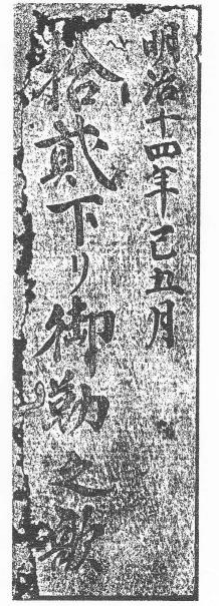 明治十四年己五月
拾貳下り御勤之歌